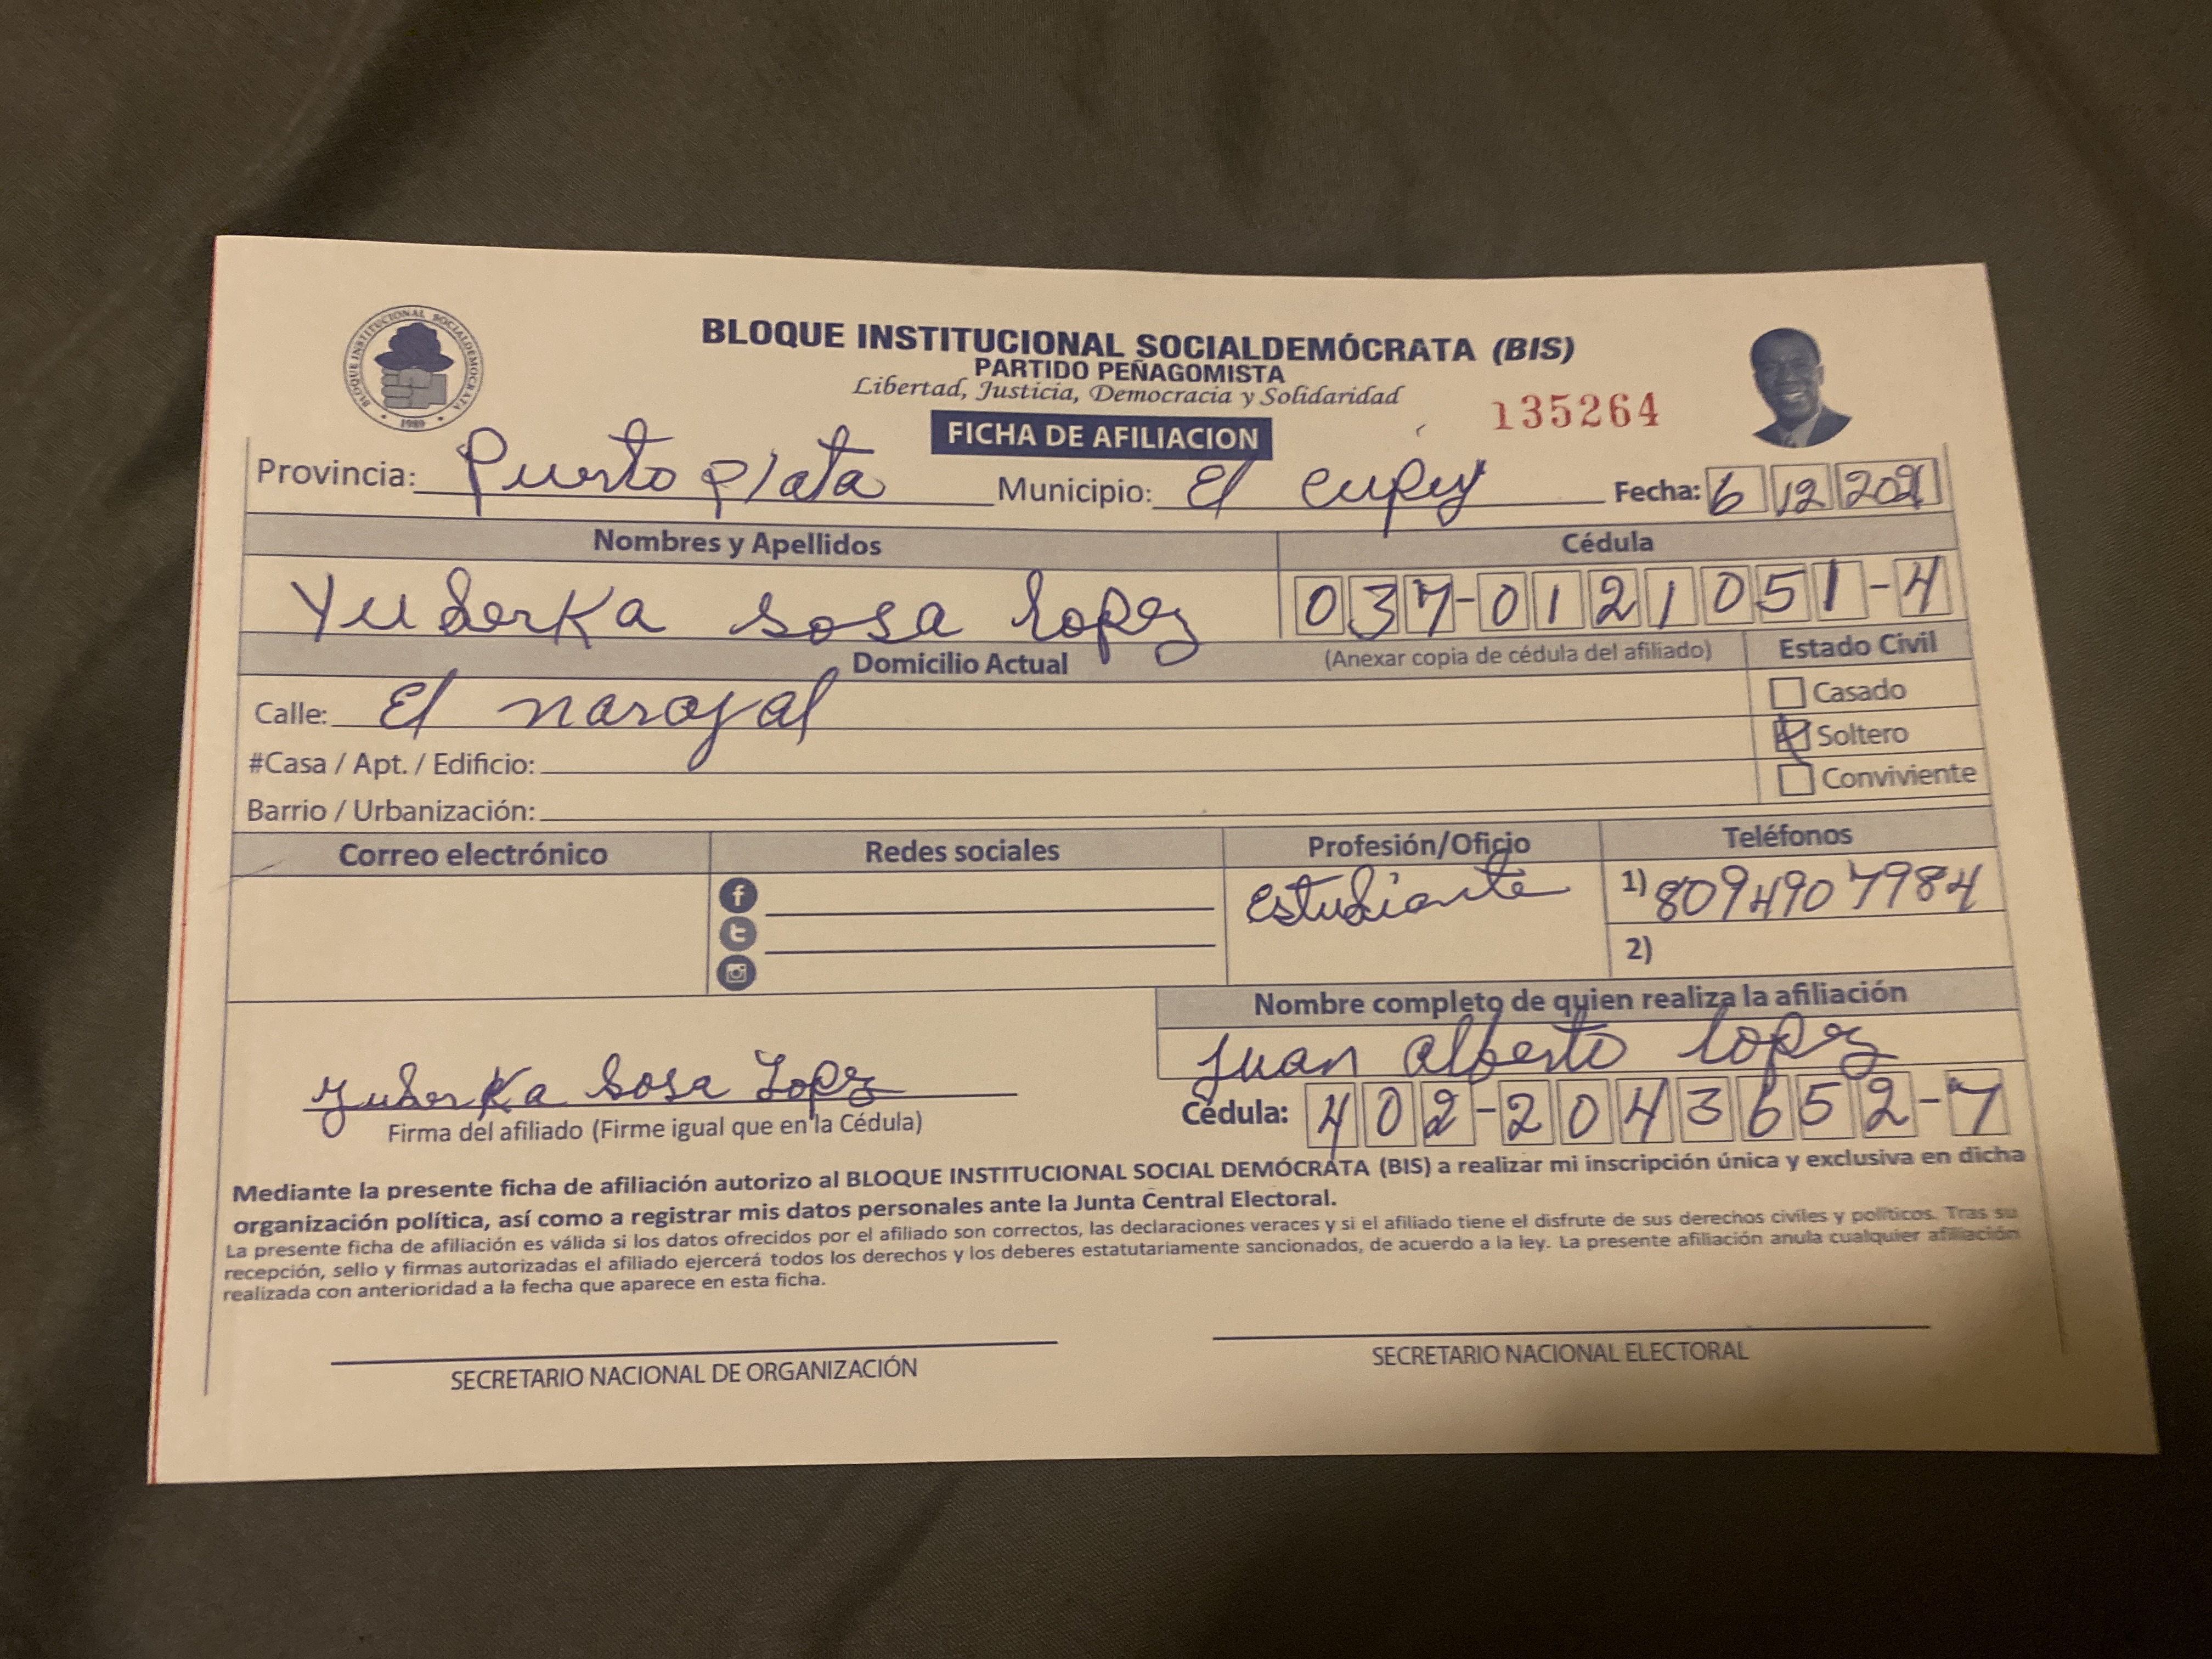 BLOQUE INSTITUCIONAL SOCIALDEMOCRATA
1989
BLOQUE INSTITUCIONAL SOCIALDEMÓCRATA (BIS)
PARTIDO PEÑAGOMISTA
Libertad, Justicia, Democracia y Solidaridad
135264
FICHA DE AFILIACION
Provincia: Puerto plata Municipio: El cupey Fecha: 6 12 2021
Nombres y Apellidos Cédula
Yuderka sosa lopez 037-0121051-4
Domicilio Actual (Anexar copia de cédula del afiliado) Estado Civil
Calle: El narajal
Casado
Soltero
Conviviente
#Casa / Apt. / Edificio:
Barrio / Urbanización:
Correo electrónico Redes sociales Profesión/Oficio Teléfonos
estudiante 1) 8094907984
2)
Nombre completo de quien realiza la afiliación
Juan alberto lopez
Yuderka Sosa Lopez
Firma del afiliado (Firme igual que en la Cédula)
Cédula: 402-2043652-7
Mediante la presente ficha de afiliación autorizo al BLOQUE INSTITUCIONAL SOCIAL DEMÓCRATA (BIS) a realizar mi inscripción única y exclusiva en dicha
organización política, así como a registrar mis datos personales ante la Junta Central Electoral.
La presente ficha de afiliación es válida si los datos ofrecidos por el afiliado son correctos, las declaraciones veraces y si el afiliado tiene el disfrute de sus derechos civiles y políticos. Tras su
recepción, sello y firmas autorizadas el afiliado ejercerá todos los derechos y los deberes estatutariamente sancionados, de acuerdo a la ley. La presente afiliación anula cualquier afiliación
realizada con anterioridad a la fecha que aparece en esta ficha.
SECRETARIO NACIONAL DE ORGANIZACIÓN
SECRETARIO NACIONAL ELECTORAL